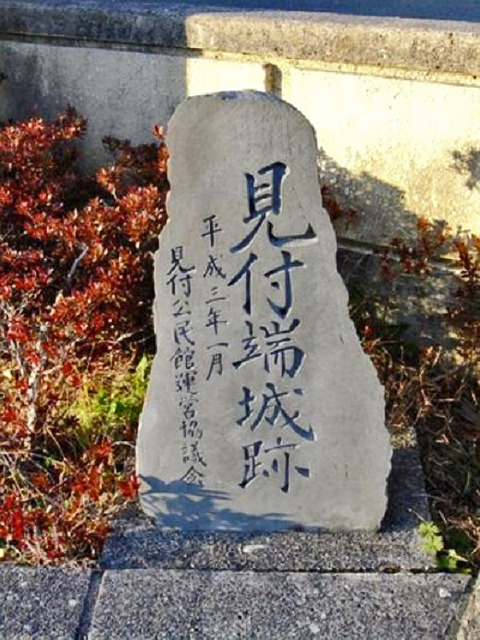 見付端城跡
平成三年一月
見付公民館運営協議会